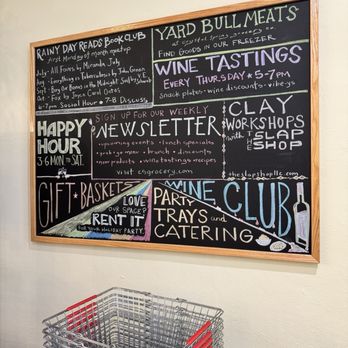 RAINY DAY READS BOOK CLUB
First Monday of month meetup
July - All Fours by Miranda July
Aug - Everything is Tuberculosis by John Green
Sept - Bury Our Bones in the Midnight Soil by V.E.
Oct - Fox by Joyce Carol Oates
6-7pm Social Hour * 7-8 Discuss
YARD BULL MEATS
FIND GOODS IN OUR FREEZER
WINE TASTINGS
EVERY THURSDAY * 5-7pm
Snack plates · wine discounts · vibeys
HAPPY
HOUR
3-6 MON to SAT.
SIGN UP FOR OUR WEEKLY
NEWSLETTER
• upcoming events • lunch specials
• brunch • discounts
• new products • wine tastings • recipes
visit cngrocery.com
CLAY
WORKSHOPS
WITH THE SLAP
SHOP
theslapshopllc.com
GIFT * BASKETS
LOVE
OUR SPACE?
RENT IT
FOR YOUR HOLIDAY PARTY.
WINE CLUB
PARTY
TRAYS and
CATERING